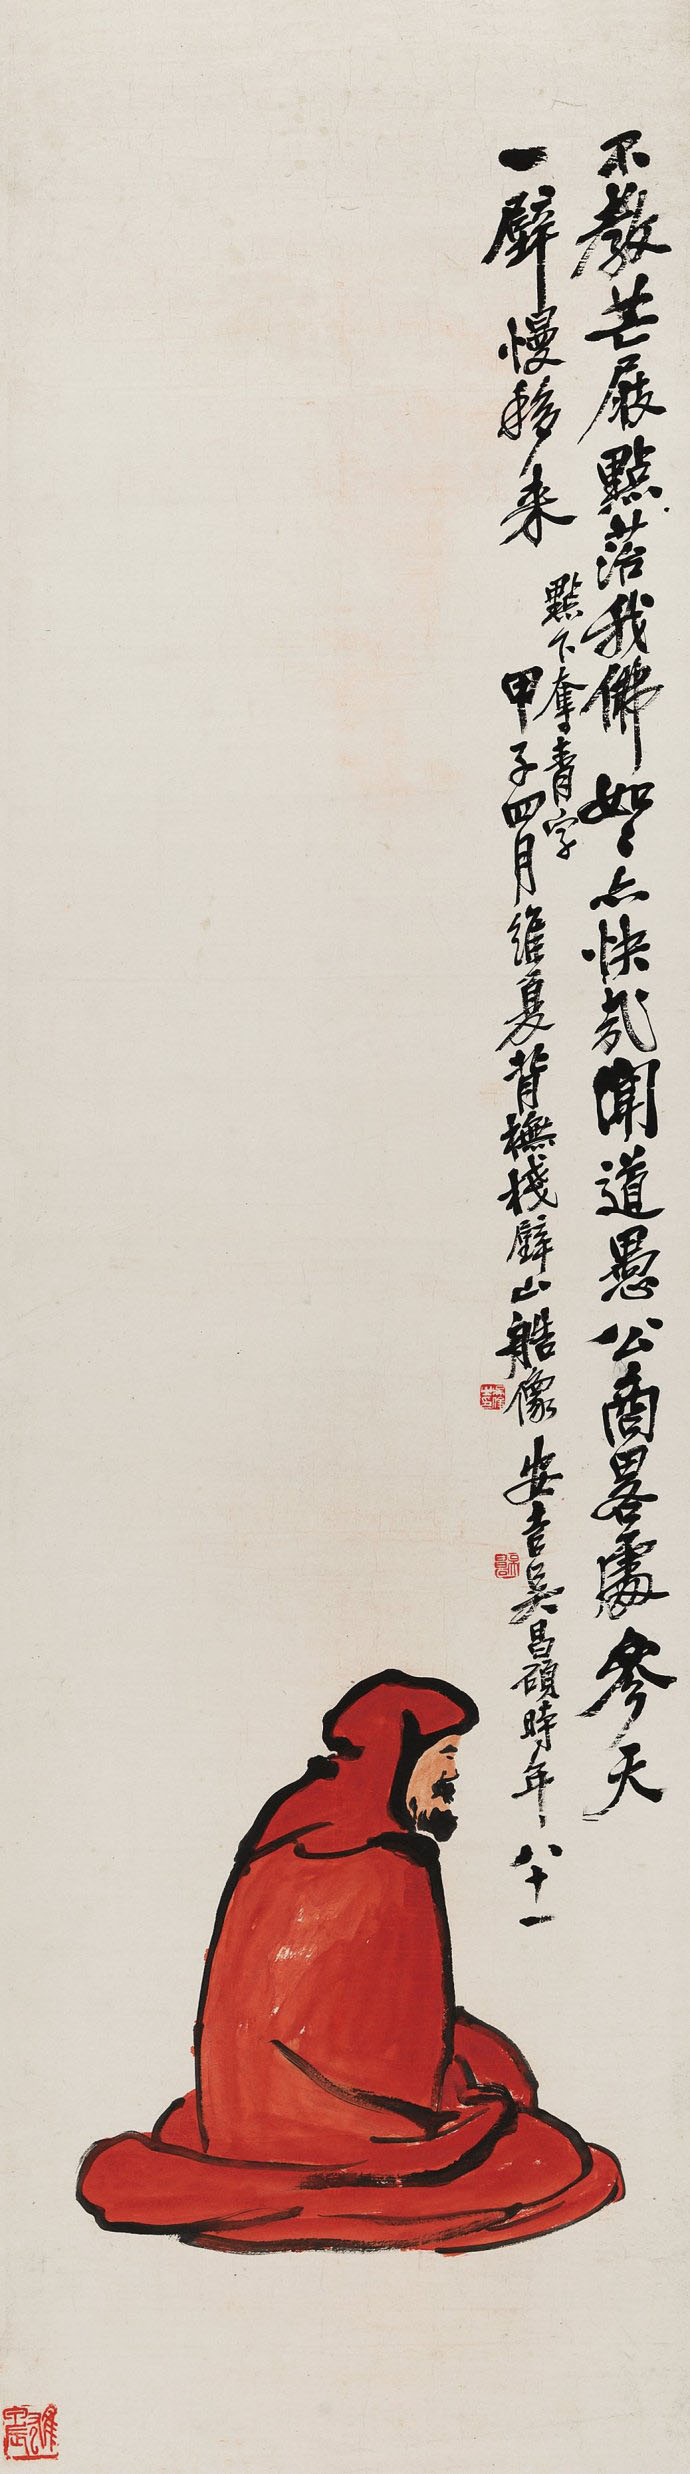 不教芒屐點苔我佛如〻亦快哉聞道愚公商畧處參天
一壁慢移来
點下奪青字
甲子四月維夏背橅棧壁山艁像 安吉吳昌碩時年八十一